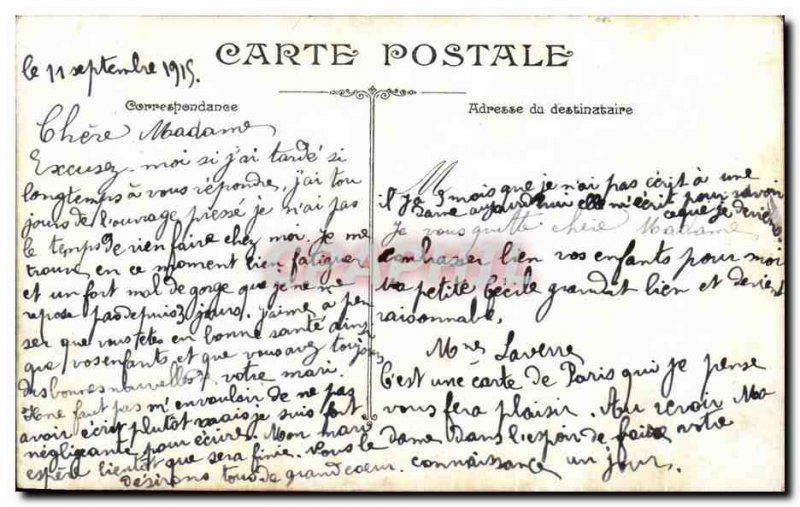 CARTE POSTALE
le 11 septembre 1915.
Correspondance
Chère Madame
Excusez-moi si j'ai tardé si
longtemps à vous répondre, j'ai tou
jours de l'ouvrage pressé je n'ai pas
le temps de rien faire chez moi. je me
trouve en ce moment bien fatiguée
et un fort mal de gorge que je ne me
repose pas depuis 3 jours. j'aime à pen
ser que vous êtes en bonne santé ainsi
que vos enfants, et que vous avez toujours
des bonnes nouvelles de votre mari.
Il ne faut pas m'en vouloir de ne pas
avoir écrit plutôt mais je suis fort
négligeante pour écrire. Mon mari
espère bientôt que sera finie. Nous le
désirons tous de grand coeur.
Adresse du destinataire
il y a 5 mois que je n'ai pas écrit à une
dame aujourd'hui elle m'écrit pour savoir
ceque je deviens.
Je vous quitte chère Madame
embrasser bien vos enfants pour moi
ma petite Cécile grandit bien et devient
raisonnable,
Mme Laverre
C'est une carte de Paris qui je pense
vous fera plaisir. Au revoir Ma
dame dans l'espoir de faire votre
connaissance un jour.